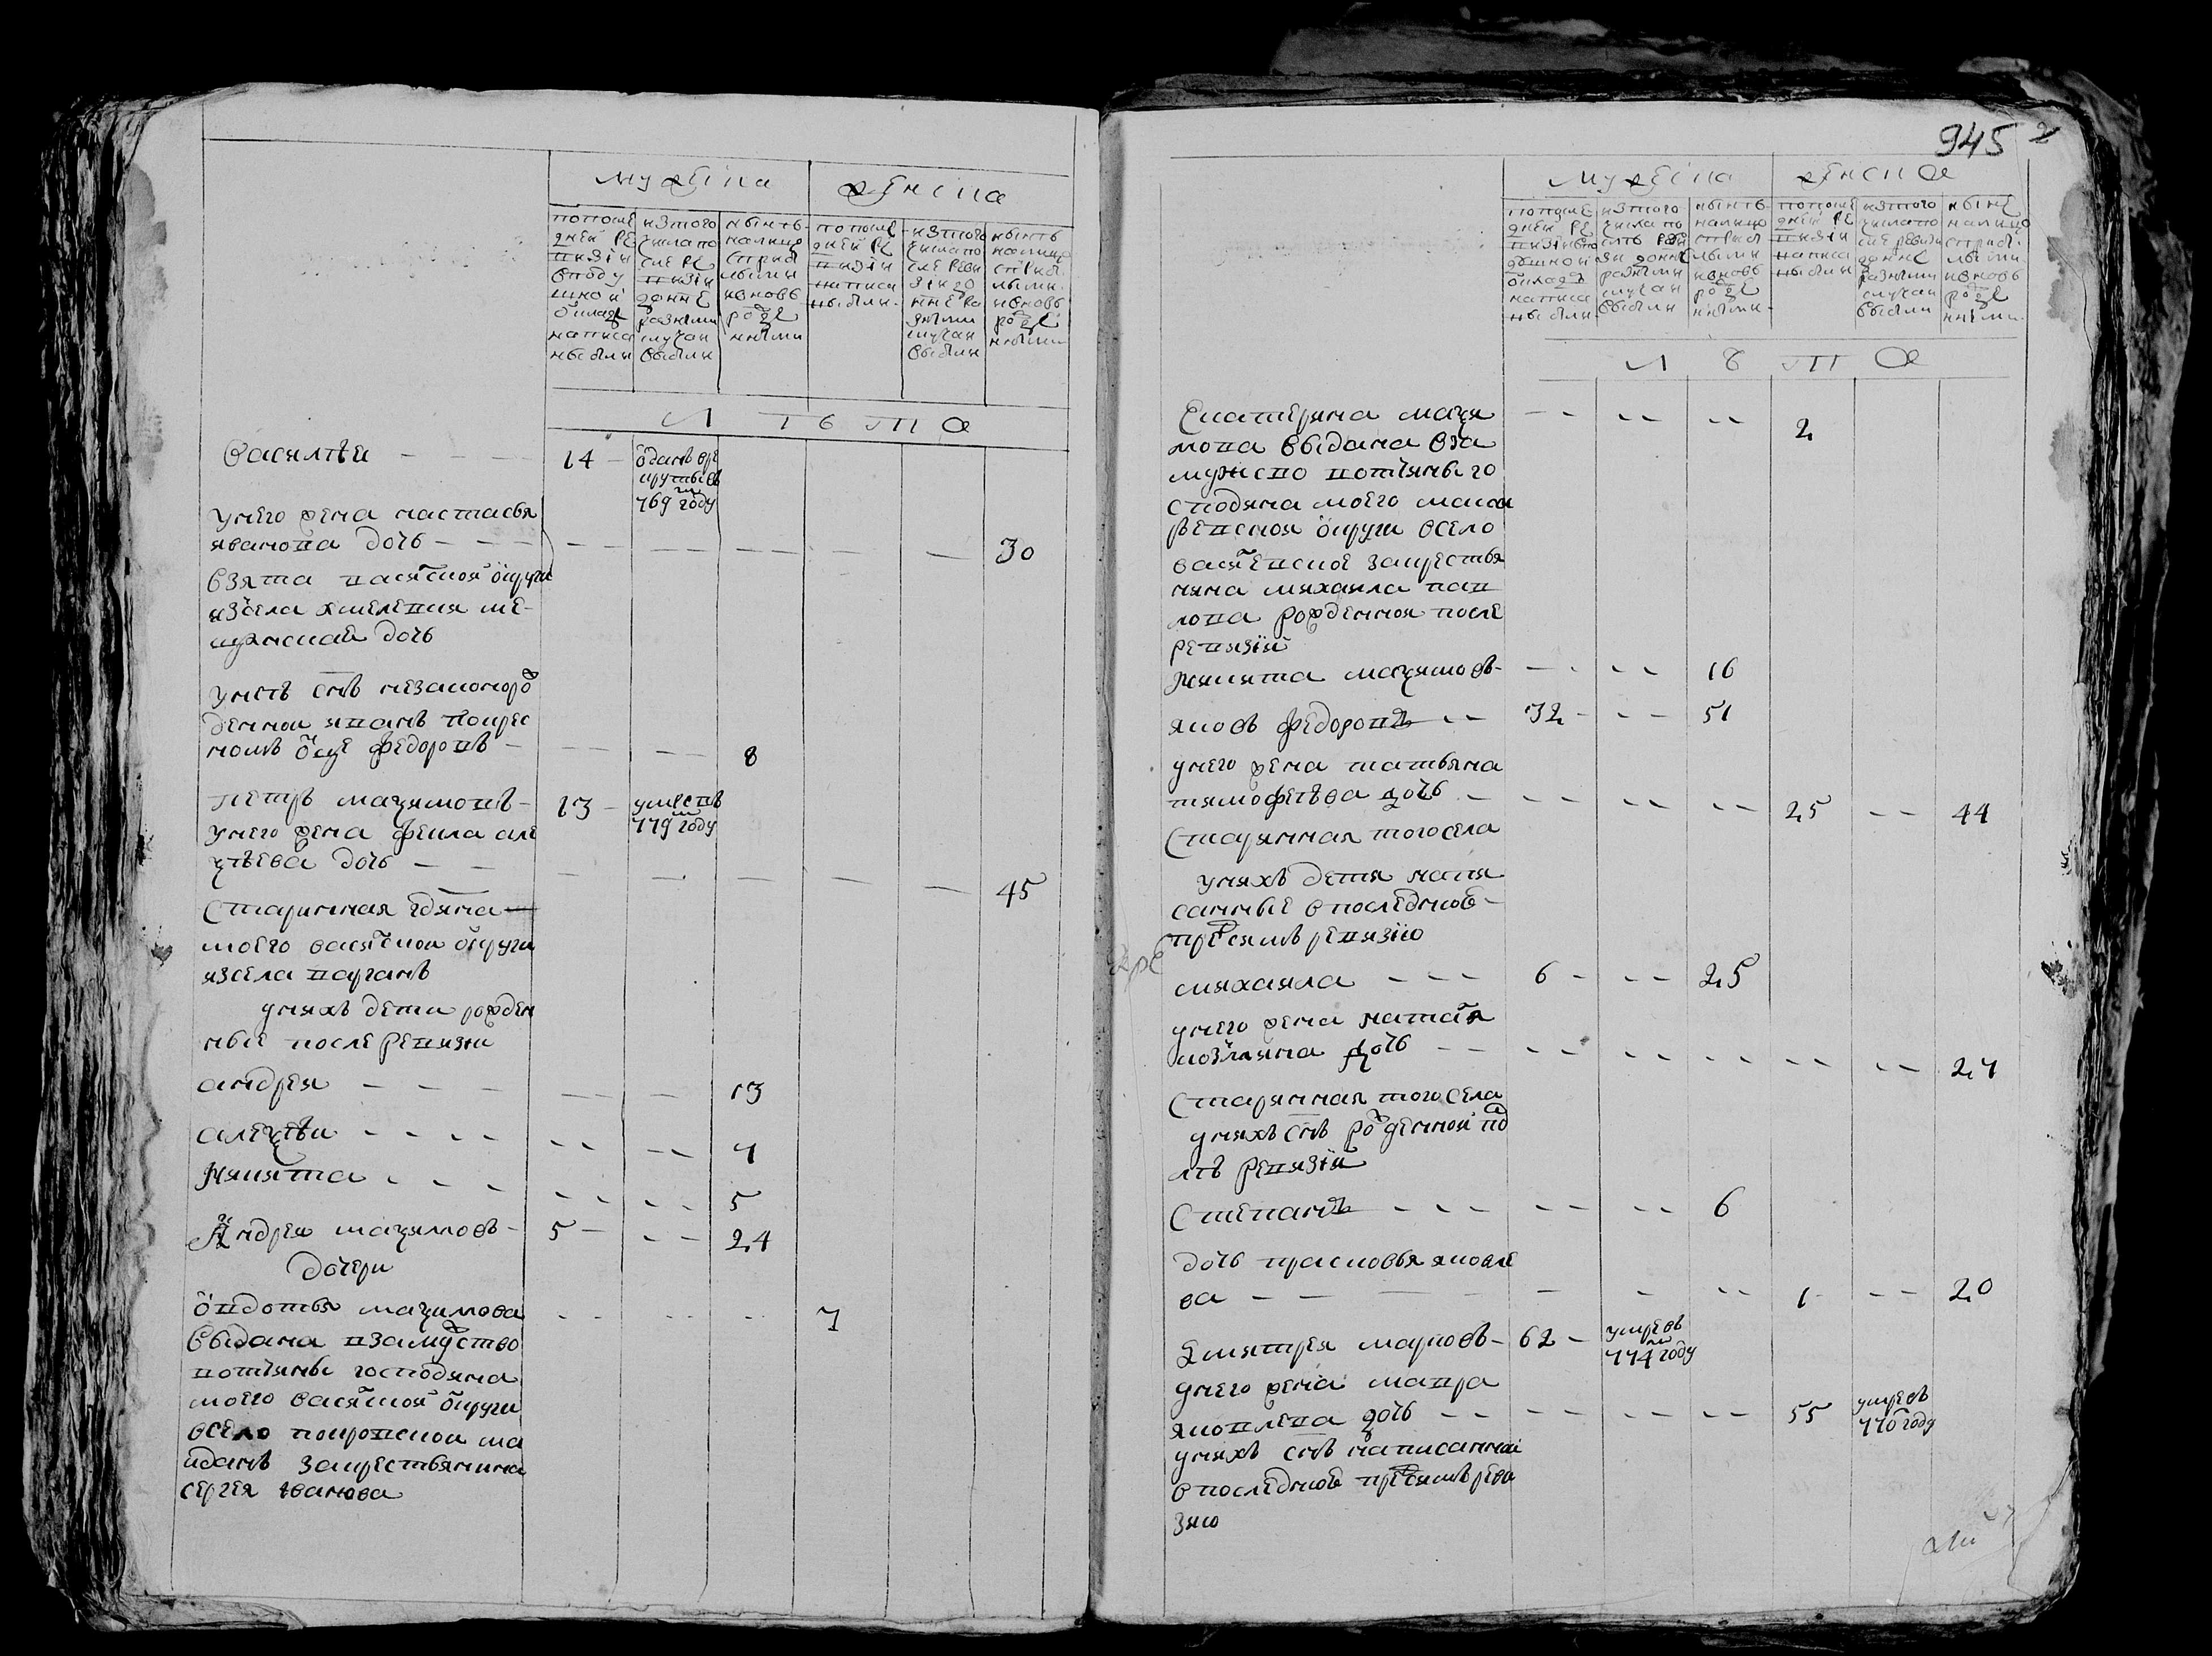 мужеска
женска
попосле
дней ре
визіи
вподу
шной
окладъ
написа
ны были
изтого
числапо
сле ре
визіи
донне
разными
случаи
выбыли
нынѣ
налицо
спри
былыми
ивновь
рожде
нными
попосле
дней ре
визіи
написа
ны были
изтого
числапо
сле реви
зіи до
нне ра
зными
случаи
выбыли
нынѣ
налицо
сприб
лыми
ивновь
рожде
нными
л ѣ т а
василѣи - - - 14 - отданъ вре
круты въ
769м году
унего жена настасья
иванова дочь - - - 30
взята васильской округи
изсела хмелевки ме-
щанскай дочь
унеѣ сынъ незаконорож
денной иванъ покрес
номъ отце федоровъ - 8
петръ мазимовъ - 13 - умре въ
779м году
унего жена фекла але
ѯѣева дочь - - 45
старинная гдина
моего васильской округи
изсела варганъ
унихъ дети рожден
ные после ревизіи
андрей - - - 13
алеѯѣи - - - - 7
никита - - - - 5
Андрей маѯимовъ - 5 - - - 24
дочери
овдотья маѯимова 7
выдана взамужство
вотчины господина
моего васильской округи
всело покровской ма
иданъ закрестьянина
сергея иванова
945
2
мужеска
женска
попосле
дней ре
визіи впо
душной
окладъ
написа
ны были
изтого
числапо
слѣ реви
зіи донне
разными
случаи
выбыли
нынѣ
налицо
сприб
лыми
ивновь
рожде
нными
попосле
дней ре
визіи
написа
ны были
изтого
числапо
сле ревизи
донне
разными
случаи
выбыли
ныне
налицо
сприб
лыми
ивновь
рожде
нными
л ѣ т а
Екатерина маѯи
мова выдана вза
мужсво вотчины го
сподина моего мака
рьевской округи всело
васильевское закрестья
нина михаила пав
лова рожденной после
ревизіи - - - 2
никита маѯимовъ - 16
яковъ федоровъ - - 32 - - - 51
унего жена татьяна
тимофеева дочь - 25 - - 44
старинная тогосела
унихъ дети напи
санные впоследнюю
пред симъ ревизію
михаила - - - 6 - - - 25
унего жена наталья
козмина дочь - - 27
старинная тогосела
унихъ сынъ рожденной по
слѣ ревизіи
степанъ - - - - 6
дочь прасковья яковле
ва - - 1 - - 20
Дмитрей марковъ - 62 - умре въ
774м году
унего жена мавра
яковлева дочь - - 55 умре въ
770 году
унихъ сынъ написанной
впоследнюю предсимъ реви
зию